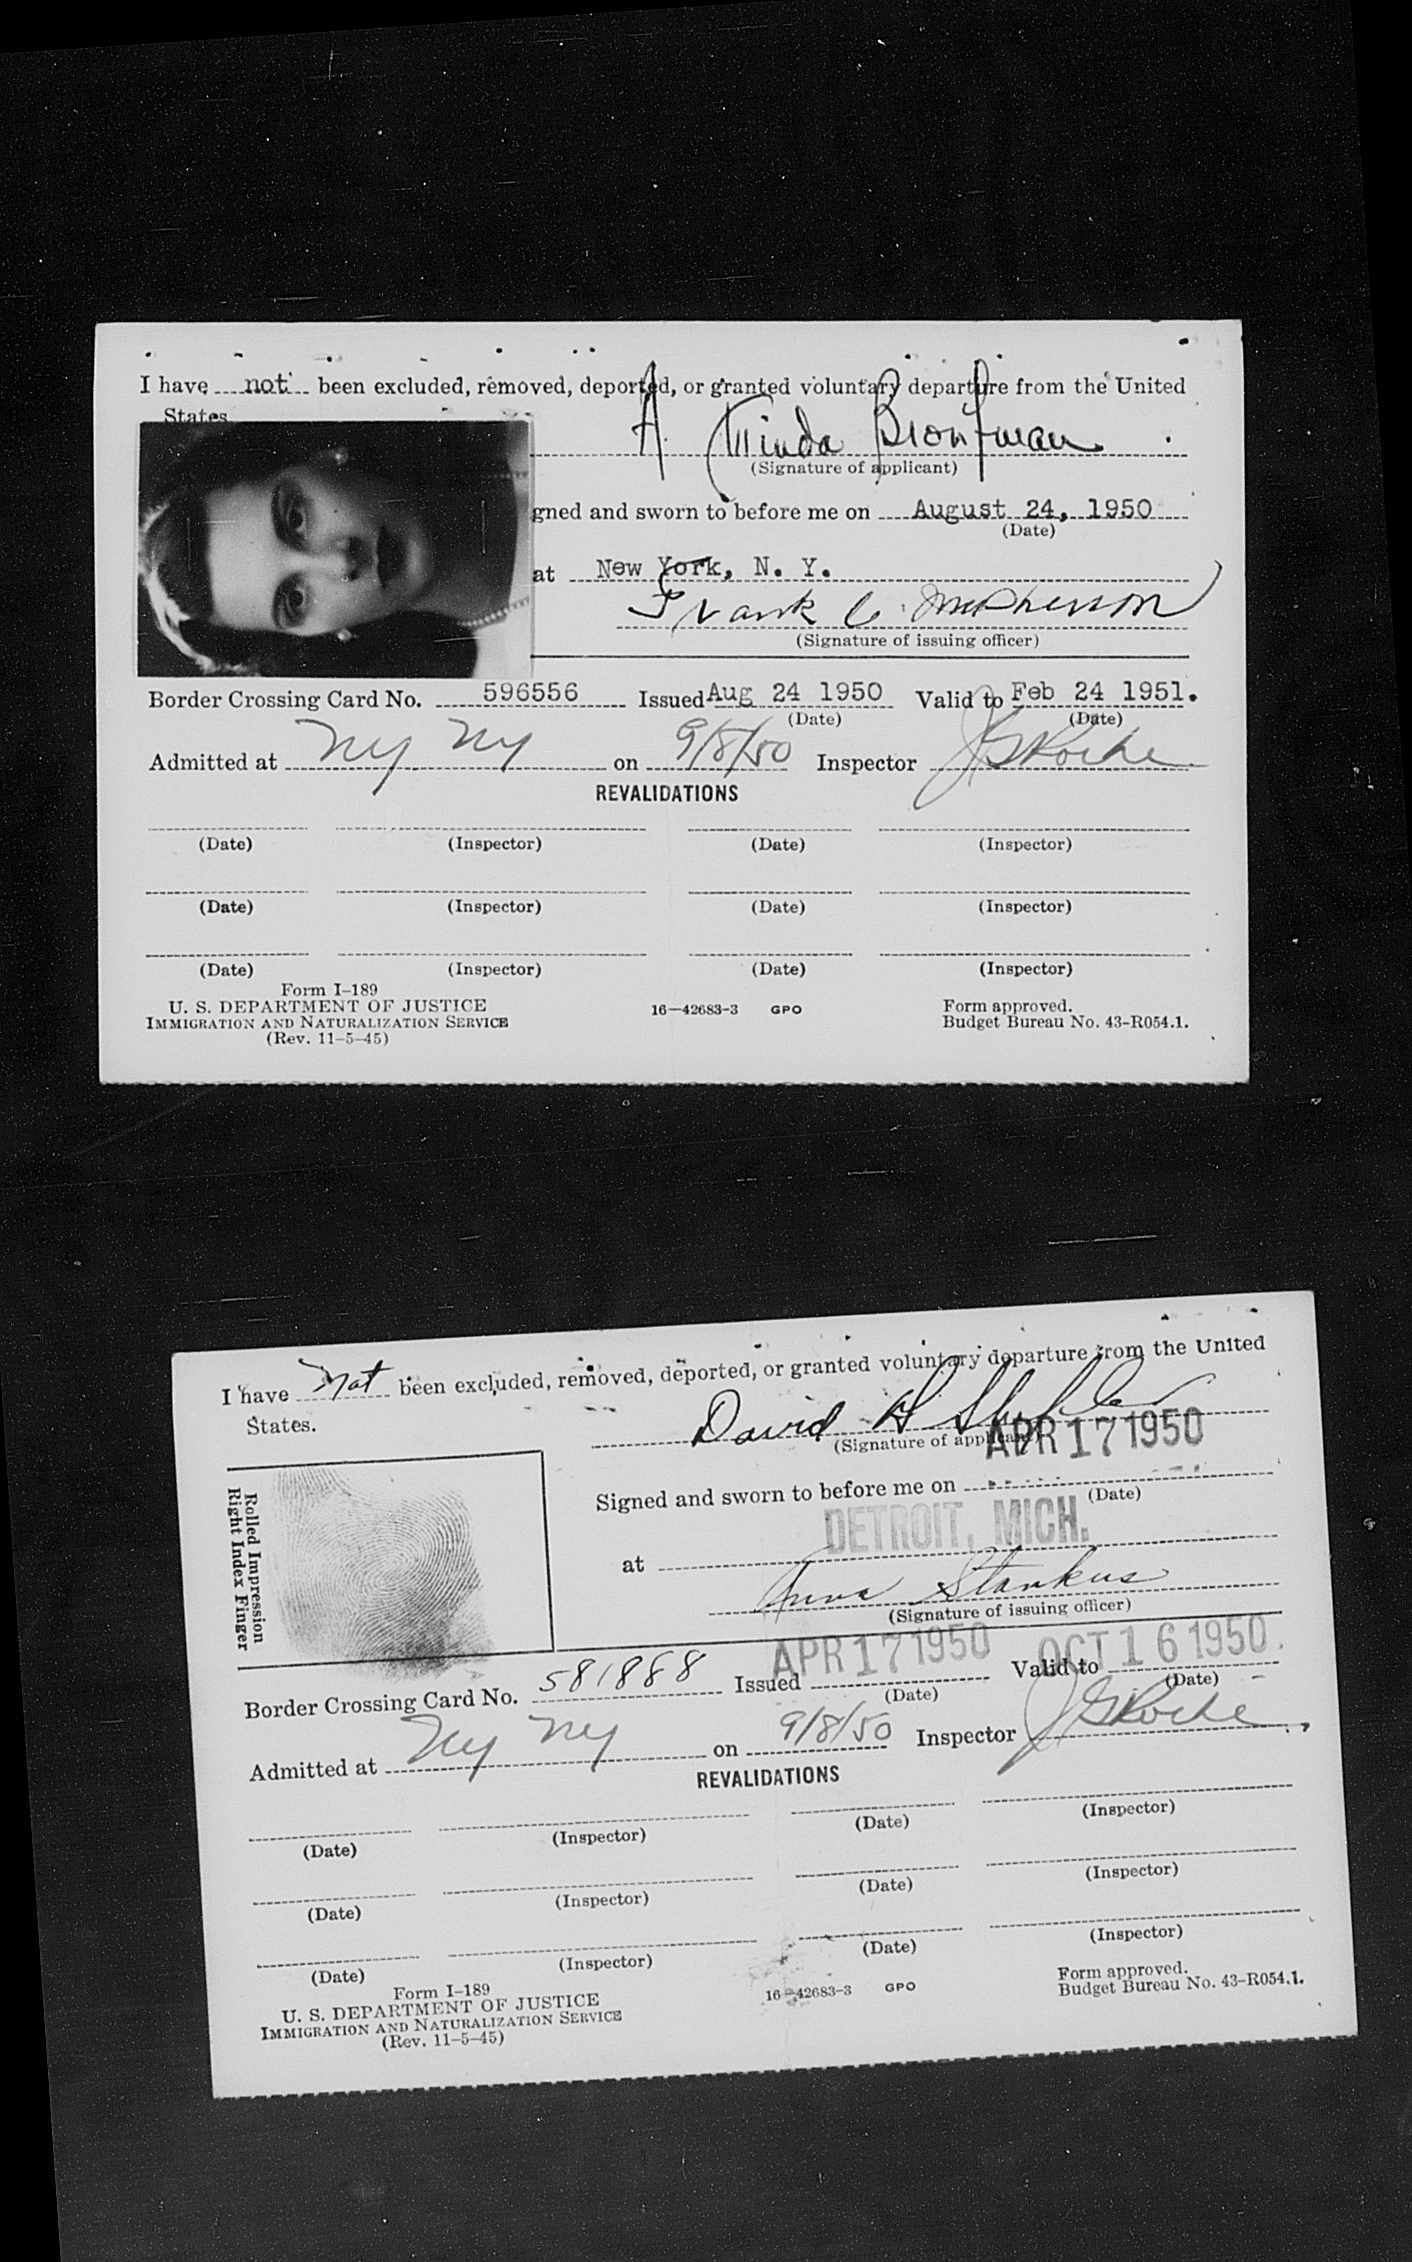 I have not been excluded, removed, deported, or granted voluntary departure from the United
States.
A. Minda Bronfman
(Signature of applicant)
gned and sworn to before me on August 24, 1950
(Date)
at New York, N. Y.
Frank C. McPherson
(Signature of issuing officer)
Border Crossing Card No. 596556 Issued Aug 24 1950 Valid to Feb 24 1951.
(Date) (Date)
Admitted at NY NY on 9/8/50 Inspector JGRoche
REVALIDATIONS
(Date) (Inspector) (Date) (Inspector)
(Date) (Inspector) (Date) (Inspector)
(Date) (Inspector) (Date) (Inspector)
Form I-189
U. S. DEPARTMENT OF JUSTICE
IMMIGRATION AND NATURALIZATION SERVICE
(Rev. 11-5-45)
16—42683-3 GPO
Form approved.
Budget Bureau No. 43-R054.1.
I have not been excluded, removed, deported, or granted voluntary departure from the United
States.
David H
(Signature of applicant)
APR 17 1950
Signed and sworn to before me on
(Date)
DETROIT, MICH.
at
Anna Stankus
(Signature of issuing officer)
Rolled Impression
Right Index Finger
Border Crossing Card No. 581888 Issued APR 17 1950 Valid to OCT 16 1950
(Date) (Date)
Admitted at NY NY on 9/8/50 Inspector JGRoche
REVALIDATIONS
(Date) (Inspector) (Date) (Inspector)
(Date) (Inspector) (Date) (Inspector)
(Date) (Inspector) (Date) (Inspector)
Form I-189
U. S. DEPARTMENT OF JUSTICE
IMMIGRATION AND NATURALIZATION SERVICE
(Rev. 11-5-45)
16—42683-3 GPO
Form approved.
Budget Bureau No. 43-R054.1.